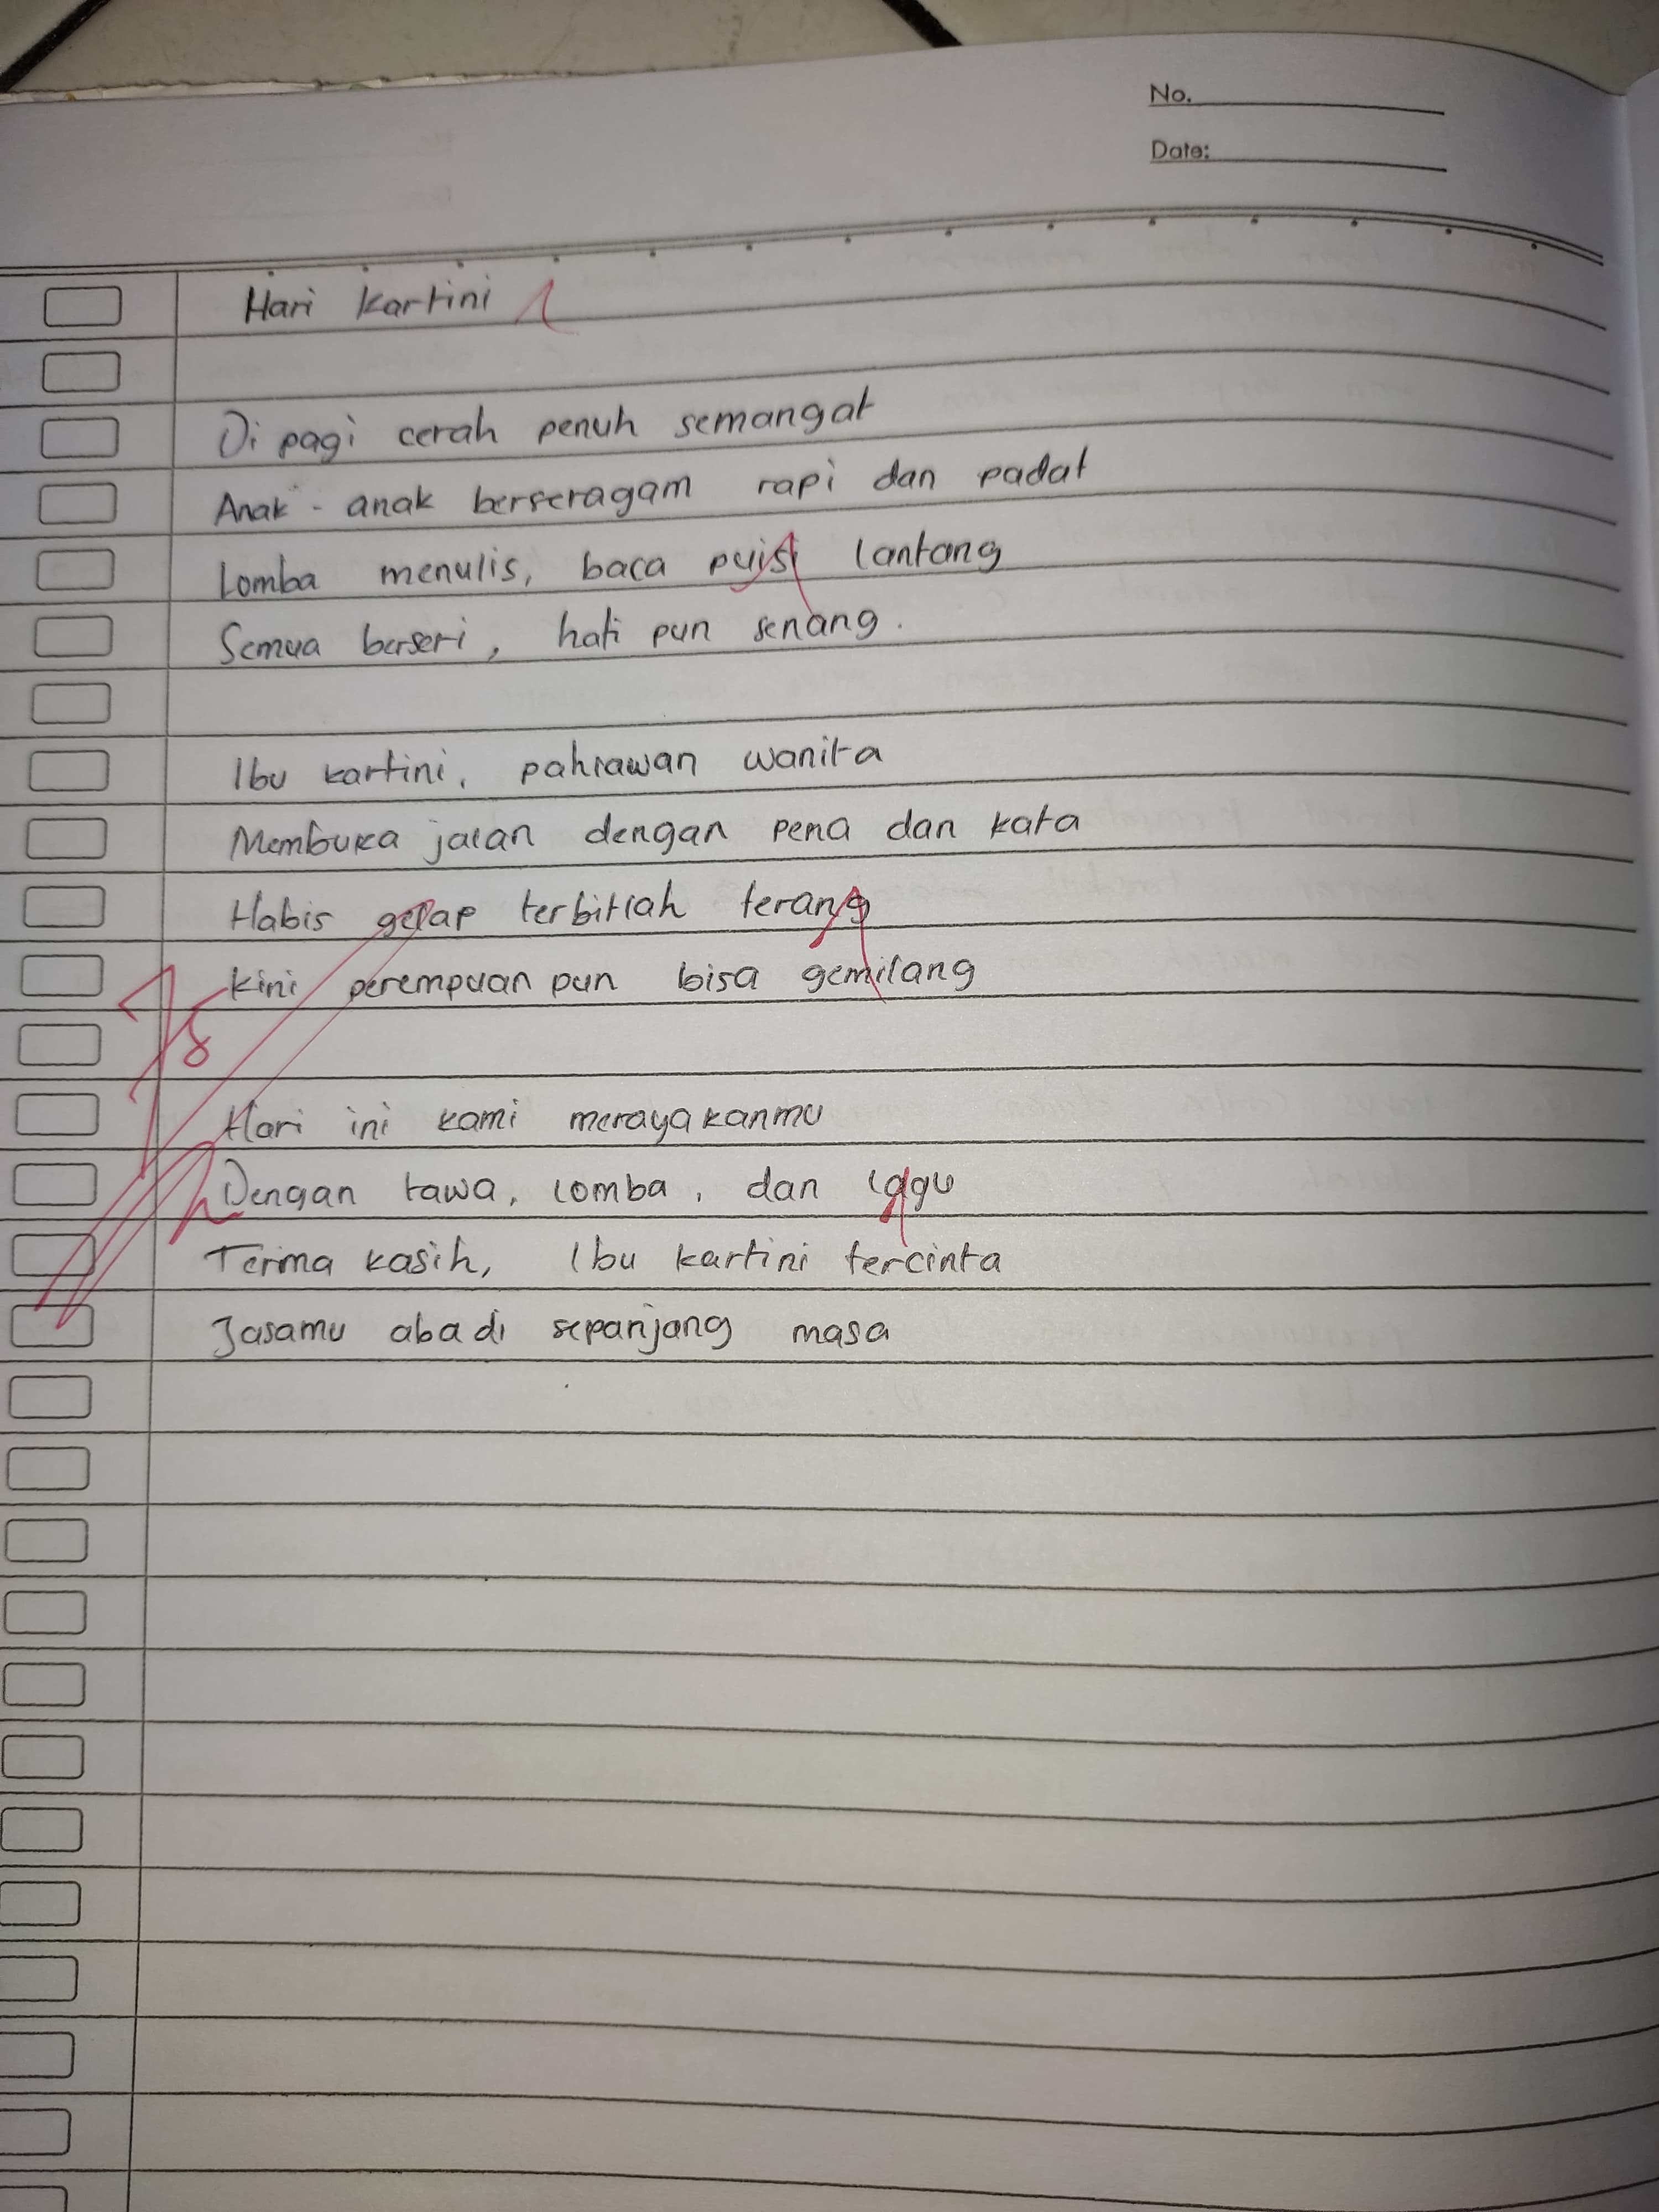 No.
Date:
Hari Kartini
Di pagi cerah penuh semangat
Anak - anak berseragam rapi dan padat
Lomba menulis, baca puisi lantang
Semua berseri, hati pun senang.
Ibu kartini, pahlawan wanita
Membuka jalan dengan pena dan kata
Habis gelap terbitlah terang
Kini perempuan pun bisa gemilang
Hari ini kami merayakanmu
Dengan tawa, lomba, dan lagu
Terima kasih, Ibu kartini tercinta
Jasamu abadi sepanjang masa